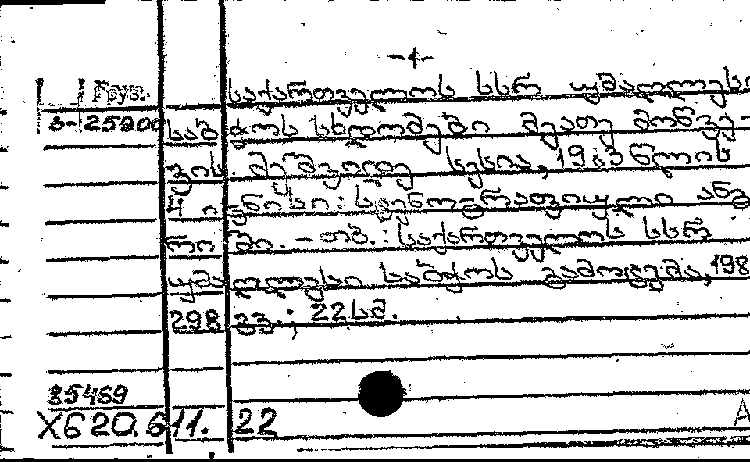 -4-
Груз. საქართველოს სსრ უმაღლესი
3- 25200 საბჭოს სხდომები მეათე მოწვე-
ვის. მეშვიდე სესია, 1983 წლის
ივნისი: სტენოგრაფიული ანგ
რიში. - თბ.: საქართველოს სსრ
უმაღლესი საბჭოს გამოცემა, 198
298 გვ.; 22 სმ.
85469
X620.611.22